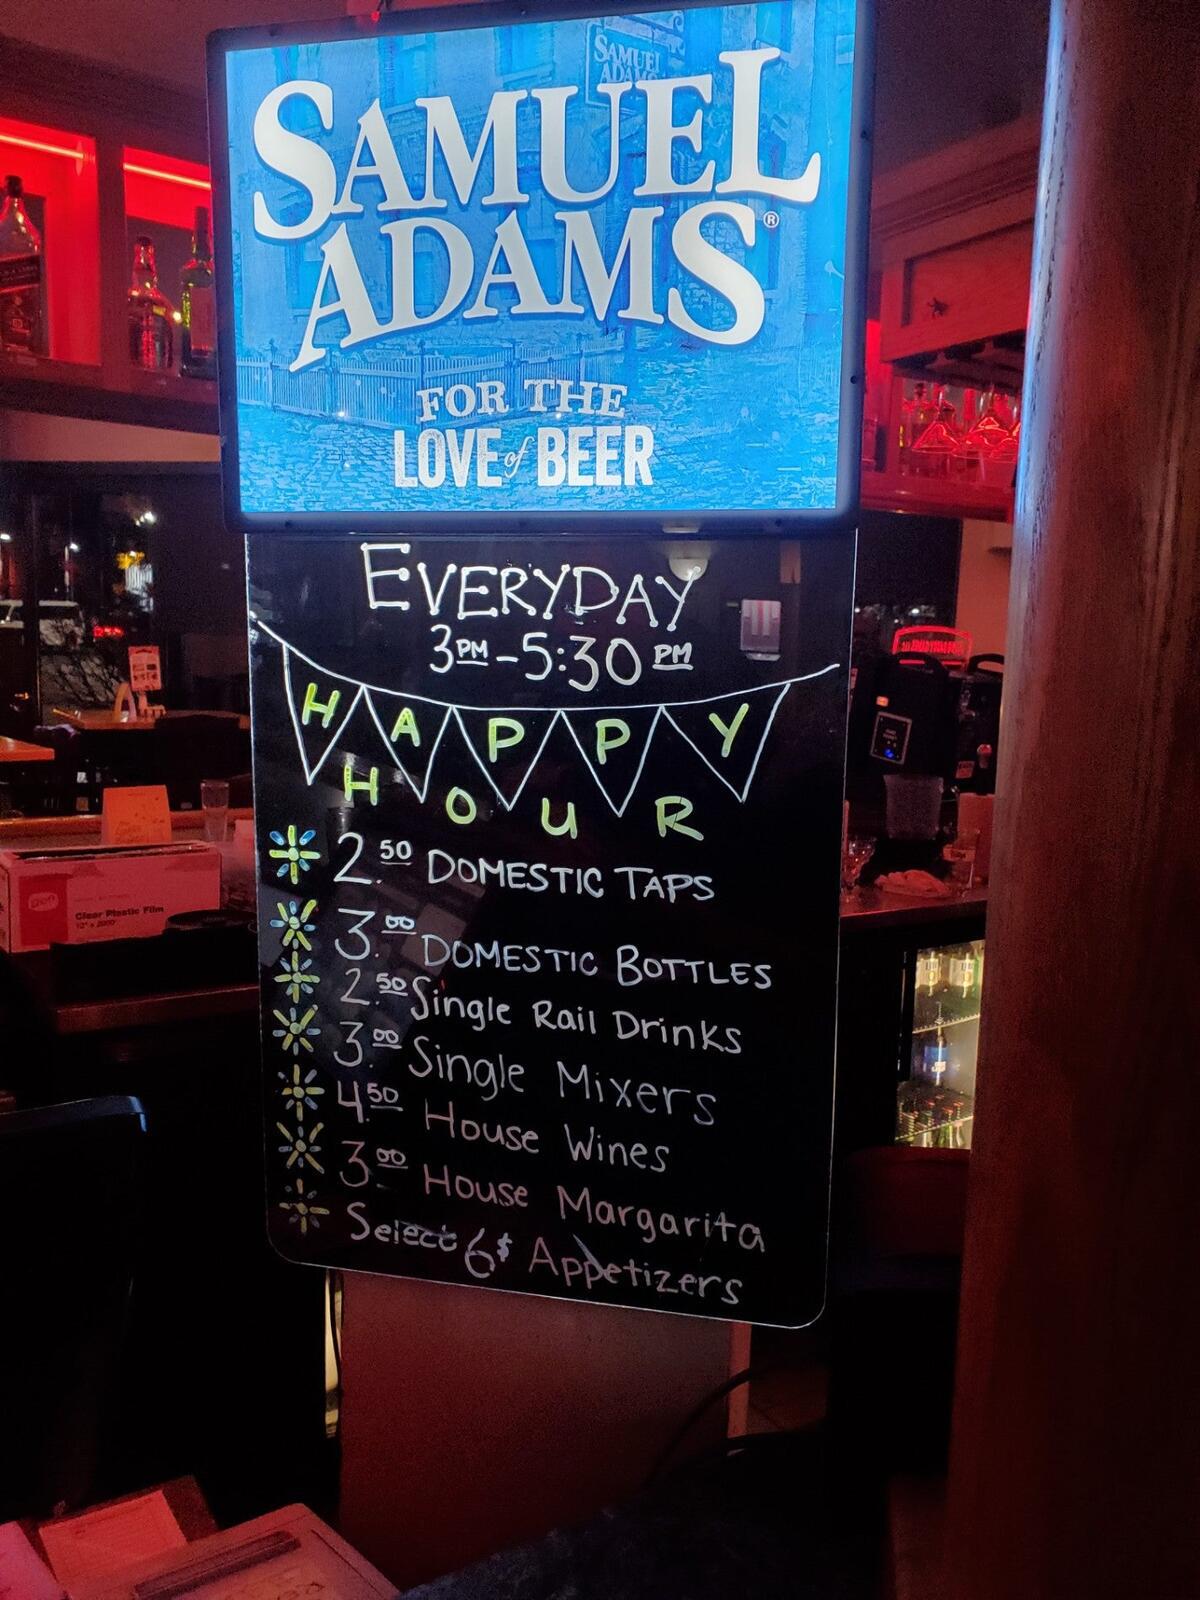 SAMUEL
ADAMS
SAMUEL
ADAMS®
FOR THE
LOVE of BEER
EVERYDAY
3PM-5:30PM
HAPPY
HOUR
2.50 DOMESTIC TAPS
3.00 DOMESTIC BOTTLES
2.50 Single Rail Drinks
3.00 Single Mixers
4.50 House Wines
3.00 House Margarita
Select 6$ Appetizers
Clear Plastic Film